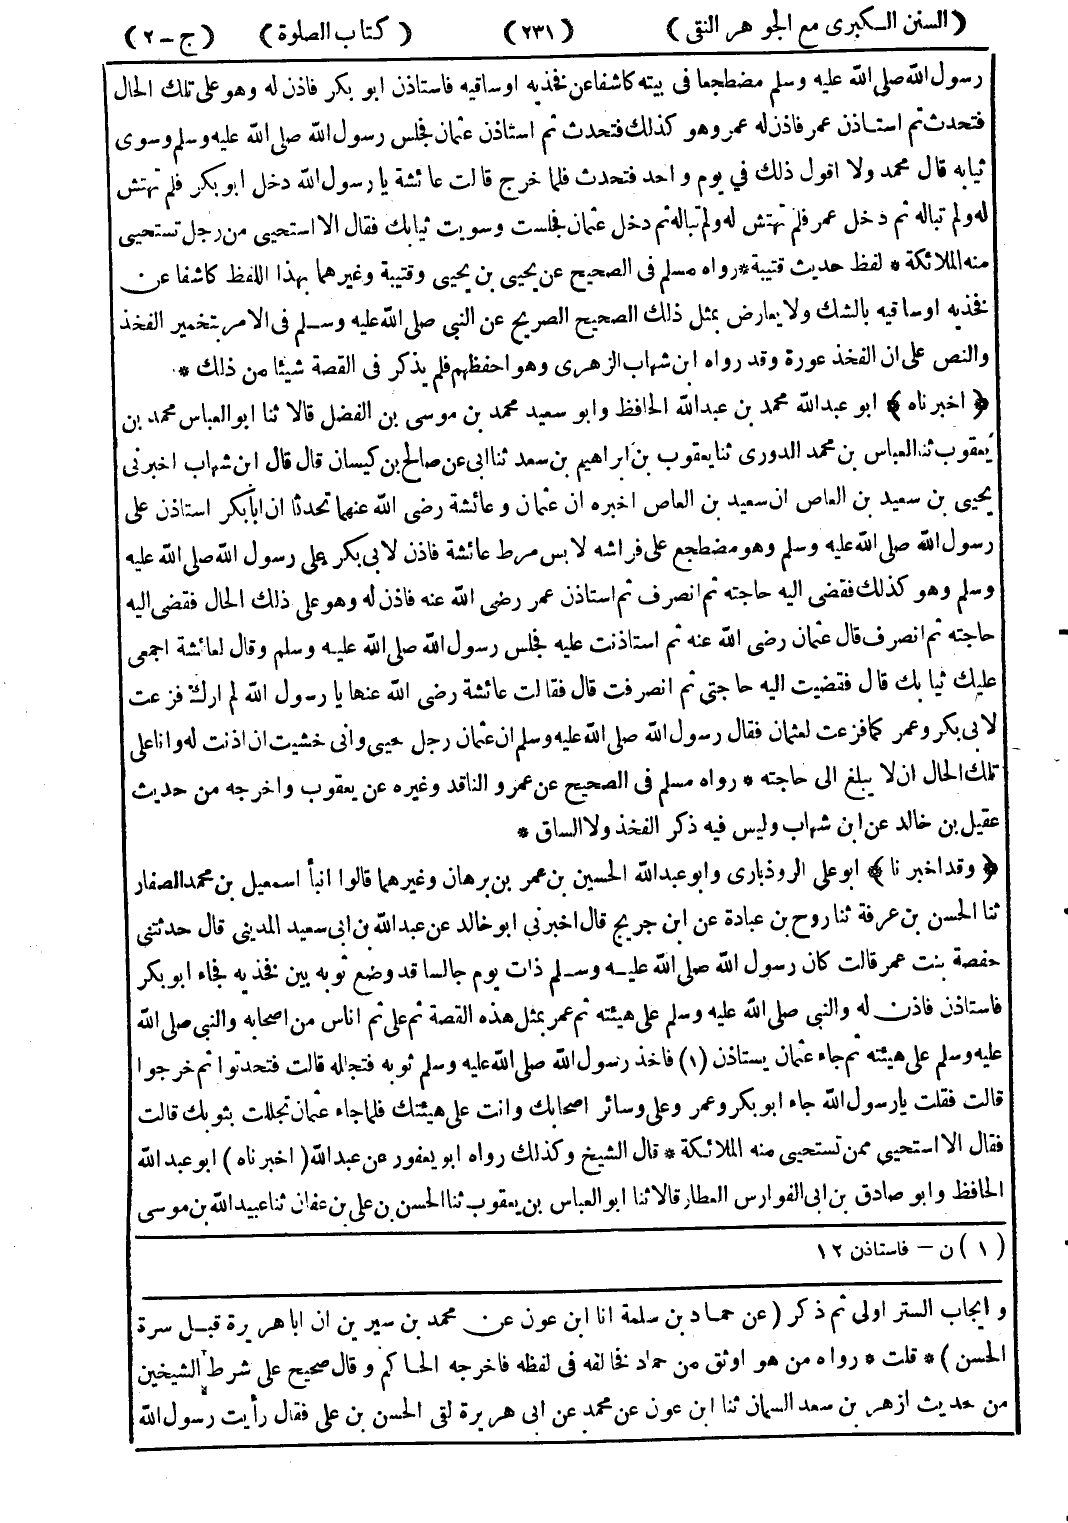 (السنن الكبرى مع الجوهر النقى) (٢٣١) (كتاب الصلوة) (ج-٢)
رسول الله صلى الله عليه وسلم مضطجعا فى بيته كاشفا عن فخذيه او ساقيه فاستاذن ابو بكر فاذن له وهو على تلك الحال
فتحدث ثم استاذن عمر فاذن له عمر وهو كذلك فتحدث ثم استاذن عثمان فجلس رسول الله صلى الله عليه وسلم وسوى
ثيابه قال محمد ولا اقول ذلك في يوم واحد فتحدث فلما خرج قالت عائشة يا رسول الله دخل ابو بكر فلم تهتش
له ولم تباله ثم دخل عمر فلم تهتش له ولم تباله ثم دخل عثمان فجلست وسويت ثيابك فقال الا استحيى من رجل تستحيى
منه الملائكة * لفظ حديث قتيبة * رواه مسلم فى الصحيح عن يحيى بن يحيى وقتيبة وغيرهما بهذا اللفظ كاشفا عن
فخذيه او ساقيه بالشك ولا يعارض بمثل ذلك الصحيح الصريح عن النبي صلى الله عليه وسلم فى الامر بتخمير الفخذ
والنص على ان الفخذ عورة وقد رواه ابن شهاب الزهرى وهو احفظهم فلم يذكر فى القصة شيئا من ذلك *
﴿ اخبرناه ﴾ ابو عبد الله محمد بن عبد الله الحافظ وابو سعيد محمد بن موسى بن الفضل قالا ثنا ابو العباس محمد بن
يعقوب ثنا العباس بن محمد الدورى ثنا يعقوب بن ابراهيم بن سعد ثنا ابى عن صالح بن كيسان قال قال ابن شهاب اخبرنى
يحيى بن سعيد بن العاص ان سعيد بن العاص اخبره ان عثمان وعائشة رضى الله عنهما تحدثا ان ابا بكر استاذن على
رسول الله صلى الله عليه وسلم وهو مضطجع على فراشه لابس مرط عائشة فاذن لابى بكر على رسول الله صلى الله عليه
وسلم وهو كذلك فقضى اليه حاجته ثم انصرف ثم استاذن عمر رضى الله عنه فاذن له وهو على ذلك الحال فقضى اليه
حاجته ثم انصرف قال عثمان رضى الله عنه ثم استاذنت عليه فجلس رسول الله صلى الله عليه وسلم وقال لعائشة اجمعى
عليك ثيابك قال فقضيت اليه حاجتى ثم انصرفت قال فقالت عائشة رضى الله عنها يا رسول الله لم ارك فزعت
لابى بكر وعمر كما فزعت لعثمان فقال رسول الله صلى الله عليه وسلم ان عثمان رجل حيى وانى خشيت ان اذنت له وانا على
تلك الحال ان لا يبلغ الى حاجته * رواه مسلم فى الصحيح عن عمرو الناقد وغيره عن يعقوب واخرجه من حديث
عقيل بن خالد عن ابن شهاب وليس فيه ذكر الفخذ ولا الساق *
﴿ وقد اخبرنا ﴾ ابو على الروذبارى وابو عبد الله الحسين بن عمر بن برهان وغيرهما قالوا انبأ اسمعيل بن محمد الصفار
ثنا الحسن بن عرفة ثنا روح بن عبادة عن ابن جريج قال اخبرني ابو خالد عن عبد الله بن ابى سعيد المدينى قال حدثتنى
حفصة بنت عمر قالت كان رسول الله صلى الله عليه وسلم ذات يوم جالسا قد وضع ثوبه بين فخذيه فجاء ابو بكر
فاستاذن فاذن له والنبي صلى الله عليه وسلم على هيئته ثم عمر بمثل هذه القصة ثم على ثم اناس من اصحابه والنبي صلى الله
عليه وسلم على هيئته ثم جاء عثمان يستاذن (١) فاخذ رسول الله صلى الله عليه وسلم ثوبه فتجلله قالت فتحدثوا ثم خرجوا
قالت فقلت يا رسول الله جاء ابو بكر وعمر وعلى وسائر اصحابك وانت على هيئتك فلما جاء عثمان تجللت بثوبك قالت
فقال الا استحيى ممن تستحيى منه الملائكة * قال الشيخ وكذلك رواه ابو يعفور عن عبد الله (اخبرناه) ابو عبد الله
الحافظ وابو صادق بن ابى الفوارس العطار قالا ثنا ابو العباس بن يعقوب ثنا الحسن بن على بن عفان ثنا عبيد الله بن موسى
(١) ن - فاستاذن ١٢
وايجاب الستر اولى ثم ذكر (عن حماد بن سلمة انا ابن عون عن محمد بن سيرين ان ابا هريرة قبل سرة
الحسن) * قلت * رواه من هو اوثق من حماد فخالفه فى لفظه فاخرجه الحاكم وقال صحيح على شرط الشيخين
من حديث ازهر بن سعد السمان ثنا ابن عون عن محمد عن ابى هريرة لقى الحسن بن على فقال رأيت رسول الله